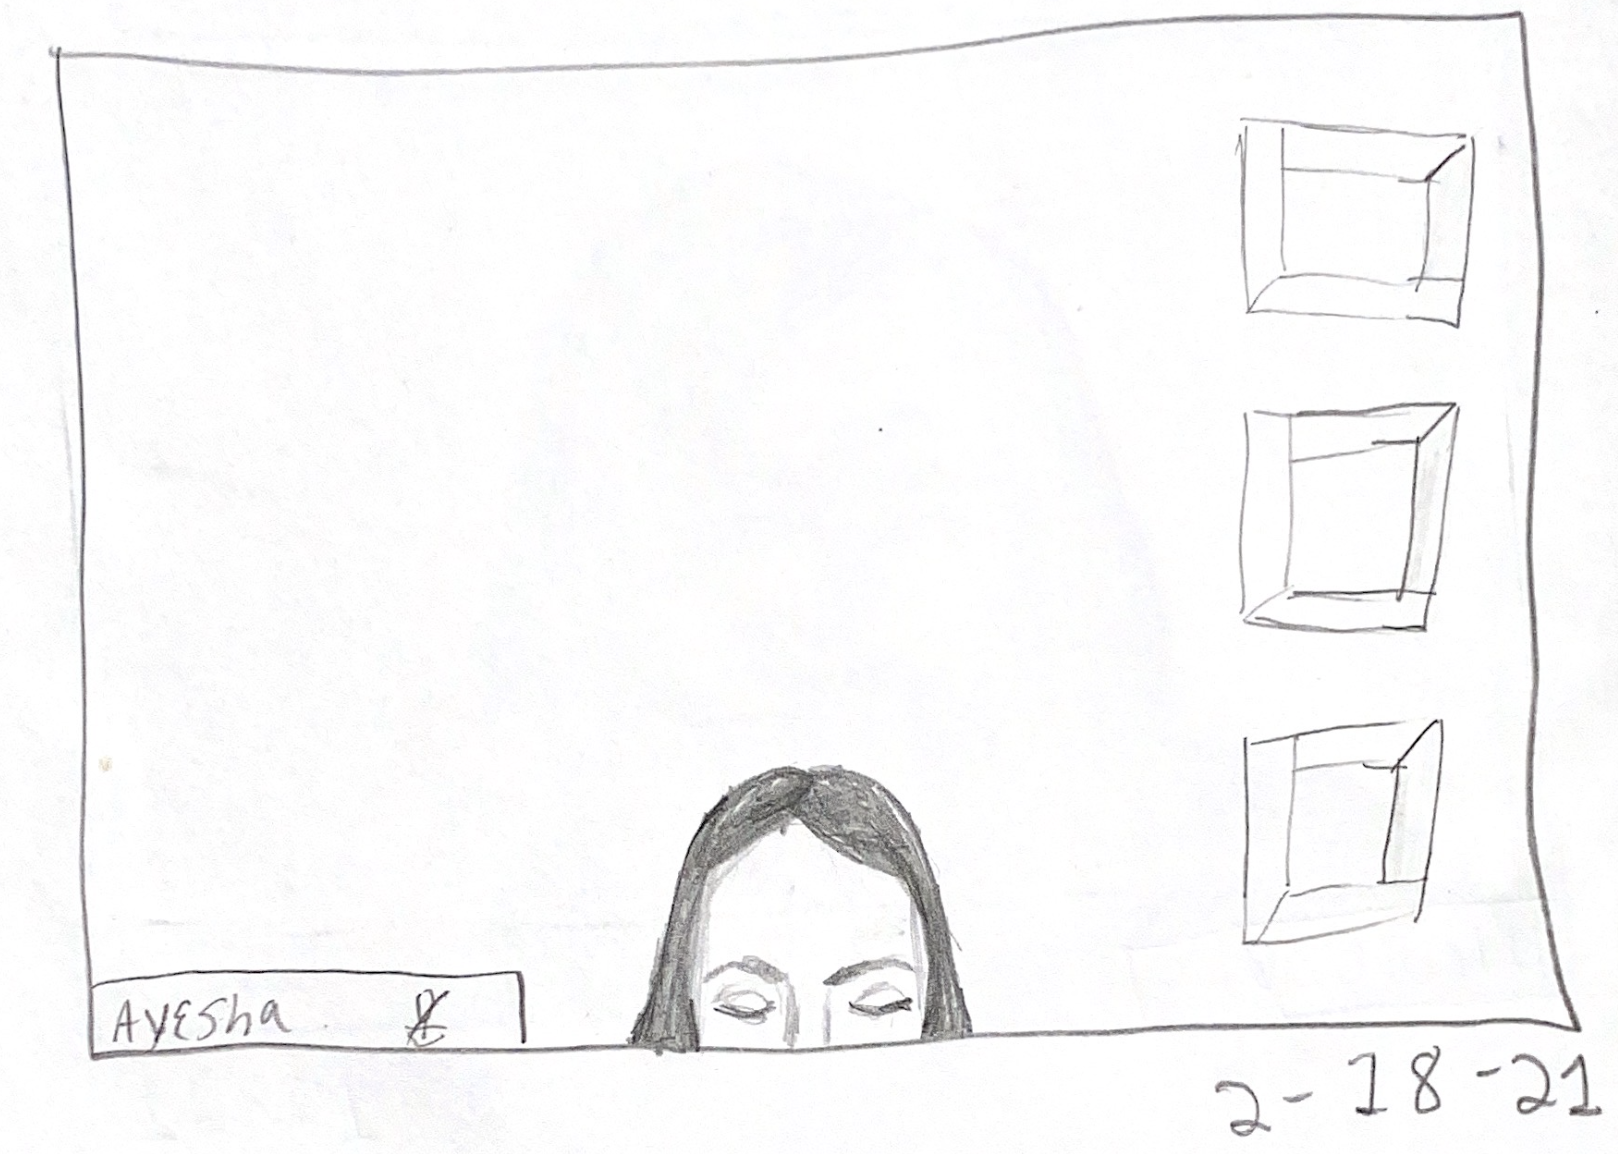 Ayesha
2-18-21